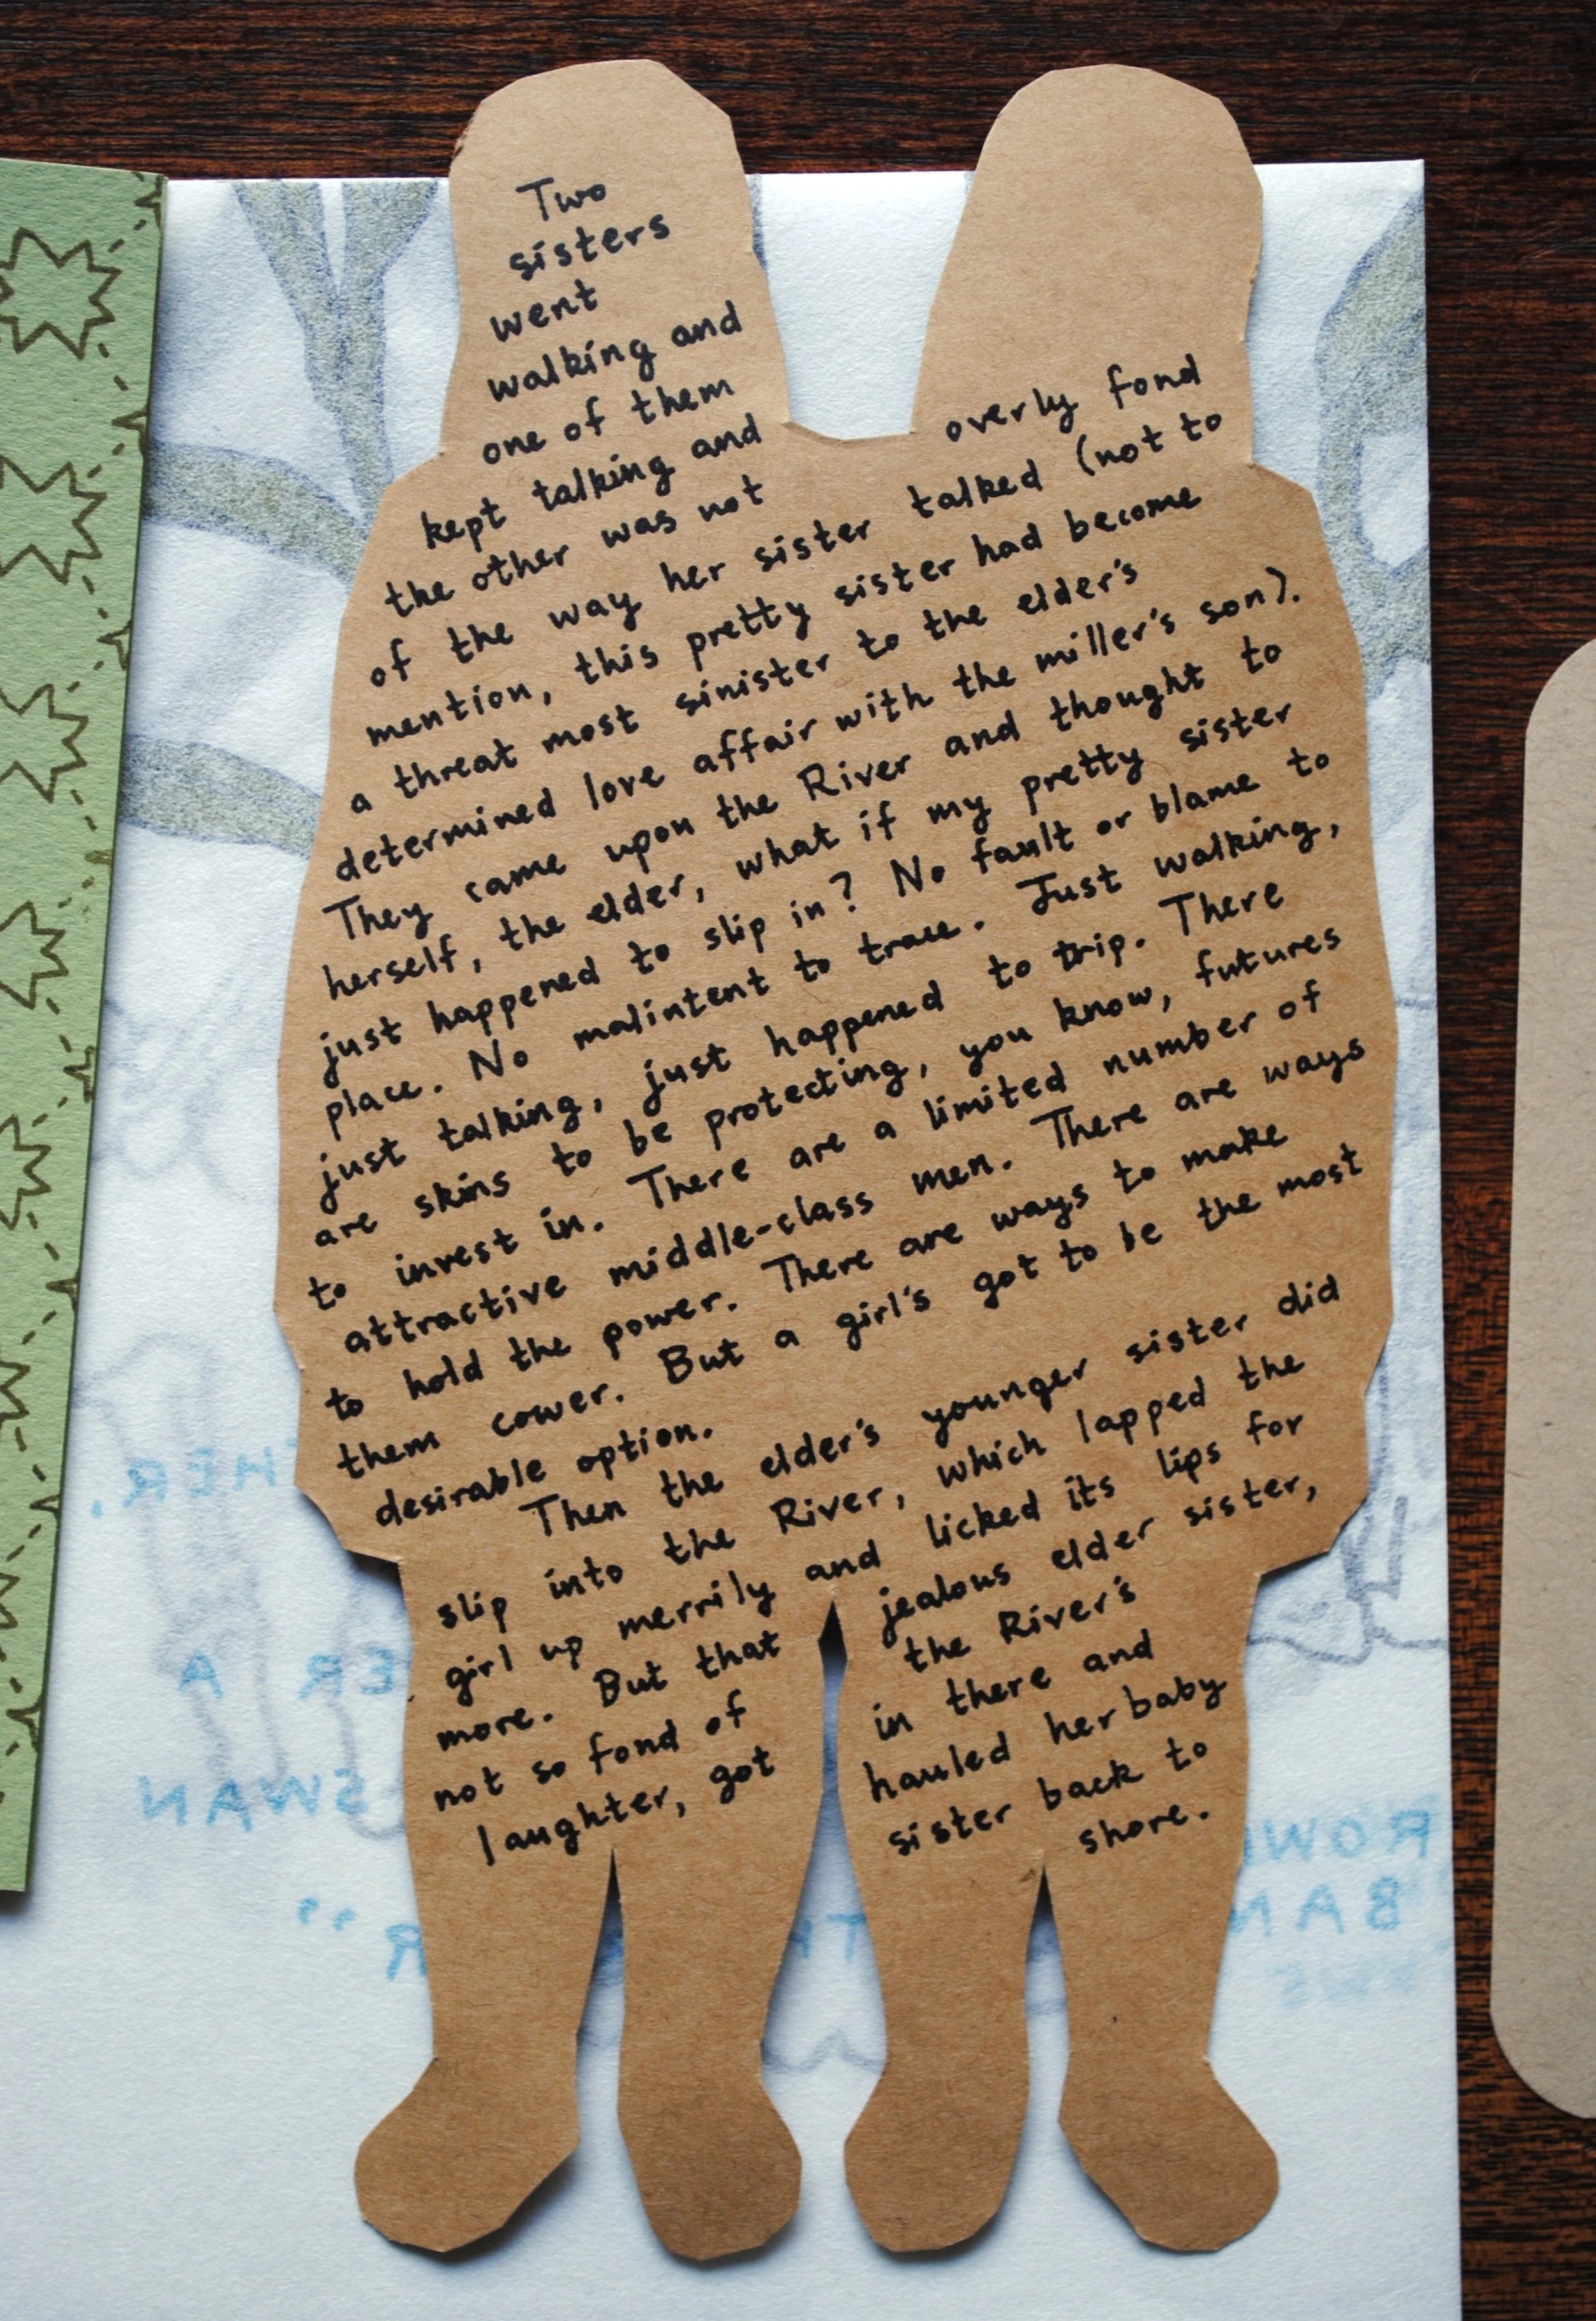 Two
sisters
went
walking and
one of them
kept talking and
the other was not overly fond
of the way her sister talked (not to
mention, this pretty sister had become
a threat most sinister to the elder's
determined love affair with the miller's son).
They came upon the River and thought to
herself, the elder, what if my pretty sister
just happened to slip in? No fault or blame to
place. No malintent to trace. Just walking,
just talking, just happened to trip. There
are skins to be protecting, you know, futures
to invest in. There are a limited number of
attractive middle-class men. There are ways
to hold the power. There are ways to make
them cower. But a girl's got to be the most
desirable option.
Then the elder's younger sister did
slip into the River, which lapped the
girl up merrily and licked its lips for
more. But that jealous elder sister,
not so fond of the River's
laughter, got in there and
hauled her baby
sister back to
shore.